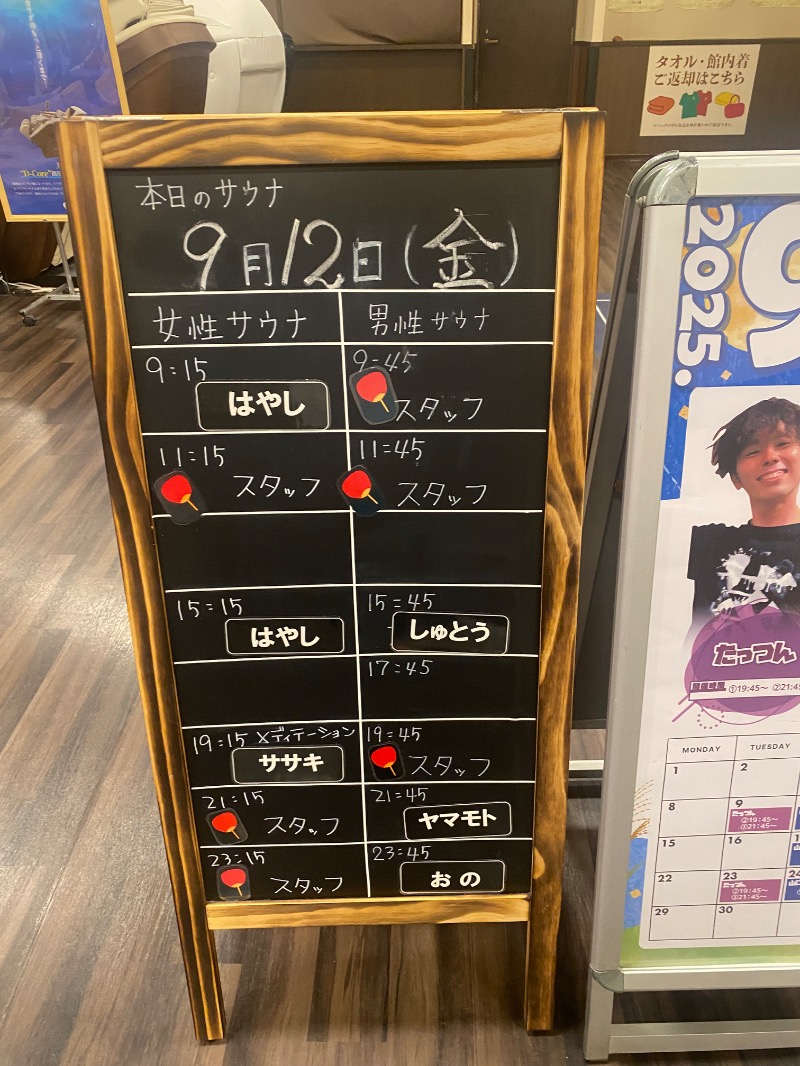 本日のサウナ
9月12日(金)
女性サウナ 男性サウナ
9:15 はやし
9:45 スタッフ
11:15 スタッフ
11:45 スタッフ
15:15 はやし
15:45 しゅとう
17:45
19:15 メディテーション ササキ
19:45 スタッフ
21:15 スタッフ
21:45 ヤマモト
23:15 スタッフ
23:45 おの
タオル・館内着
ご返却はこちら
"D-Core"
2025.
9
たっつん
①19:45〜 ②21:45
MONDAY TUESDAY
1 2
8 9
たっつん
②19:45〜
③21:45〜
15 16
22 23 24
たっつん
②19:45〜
③21:45〜
29 30